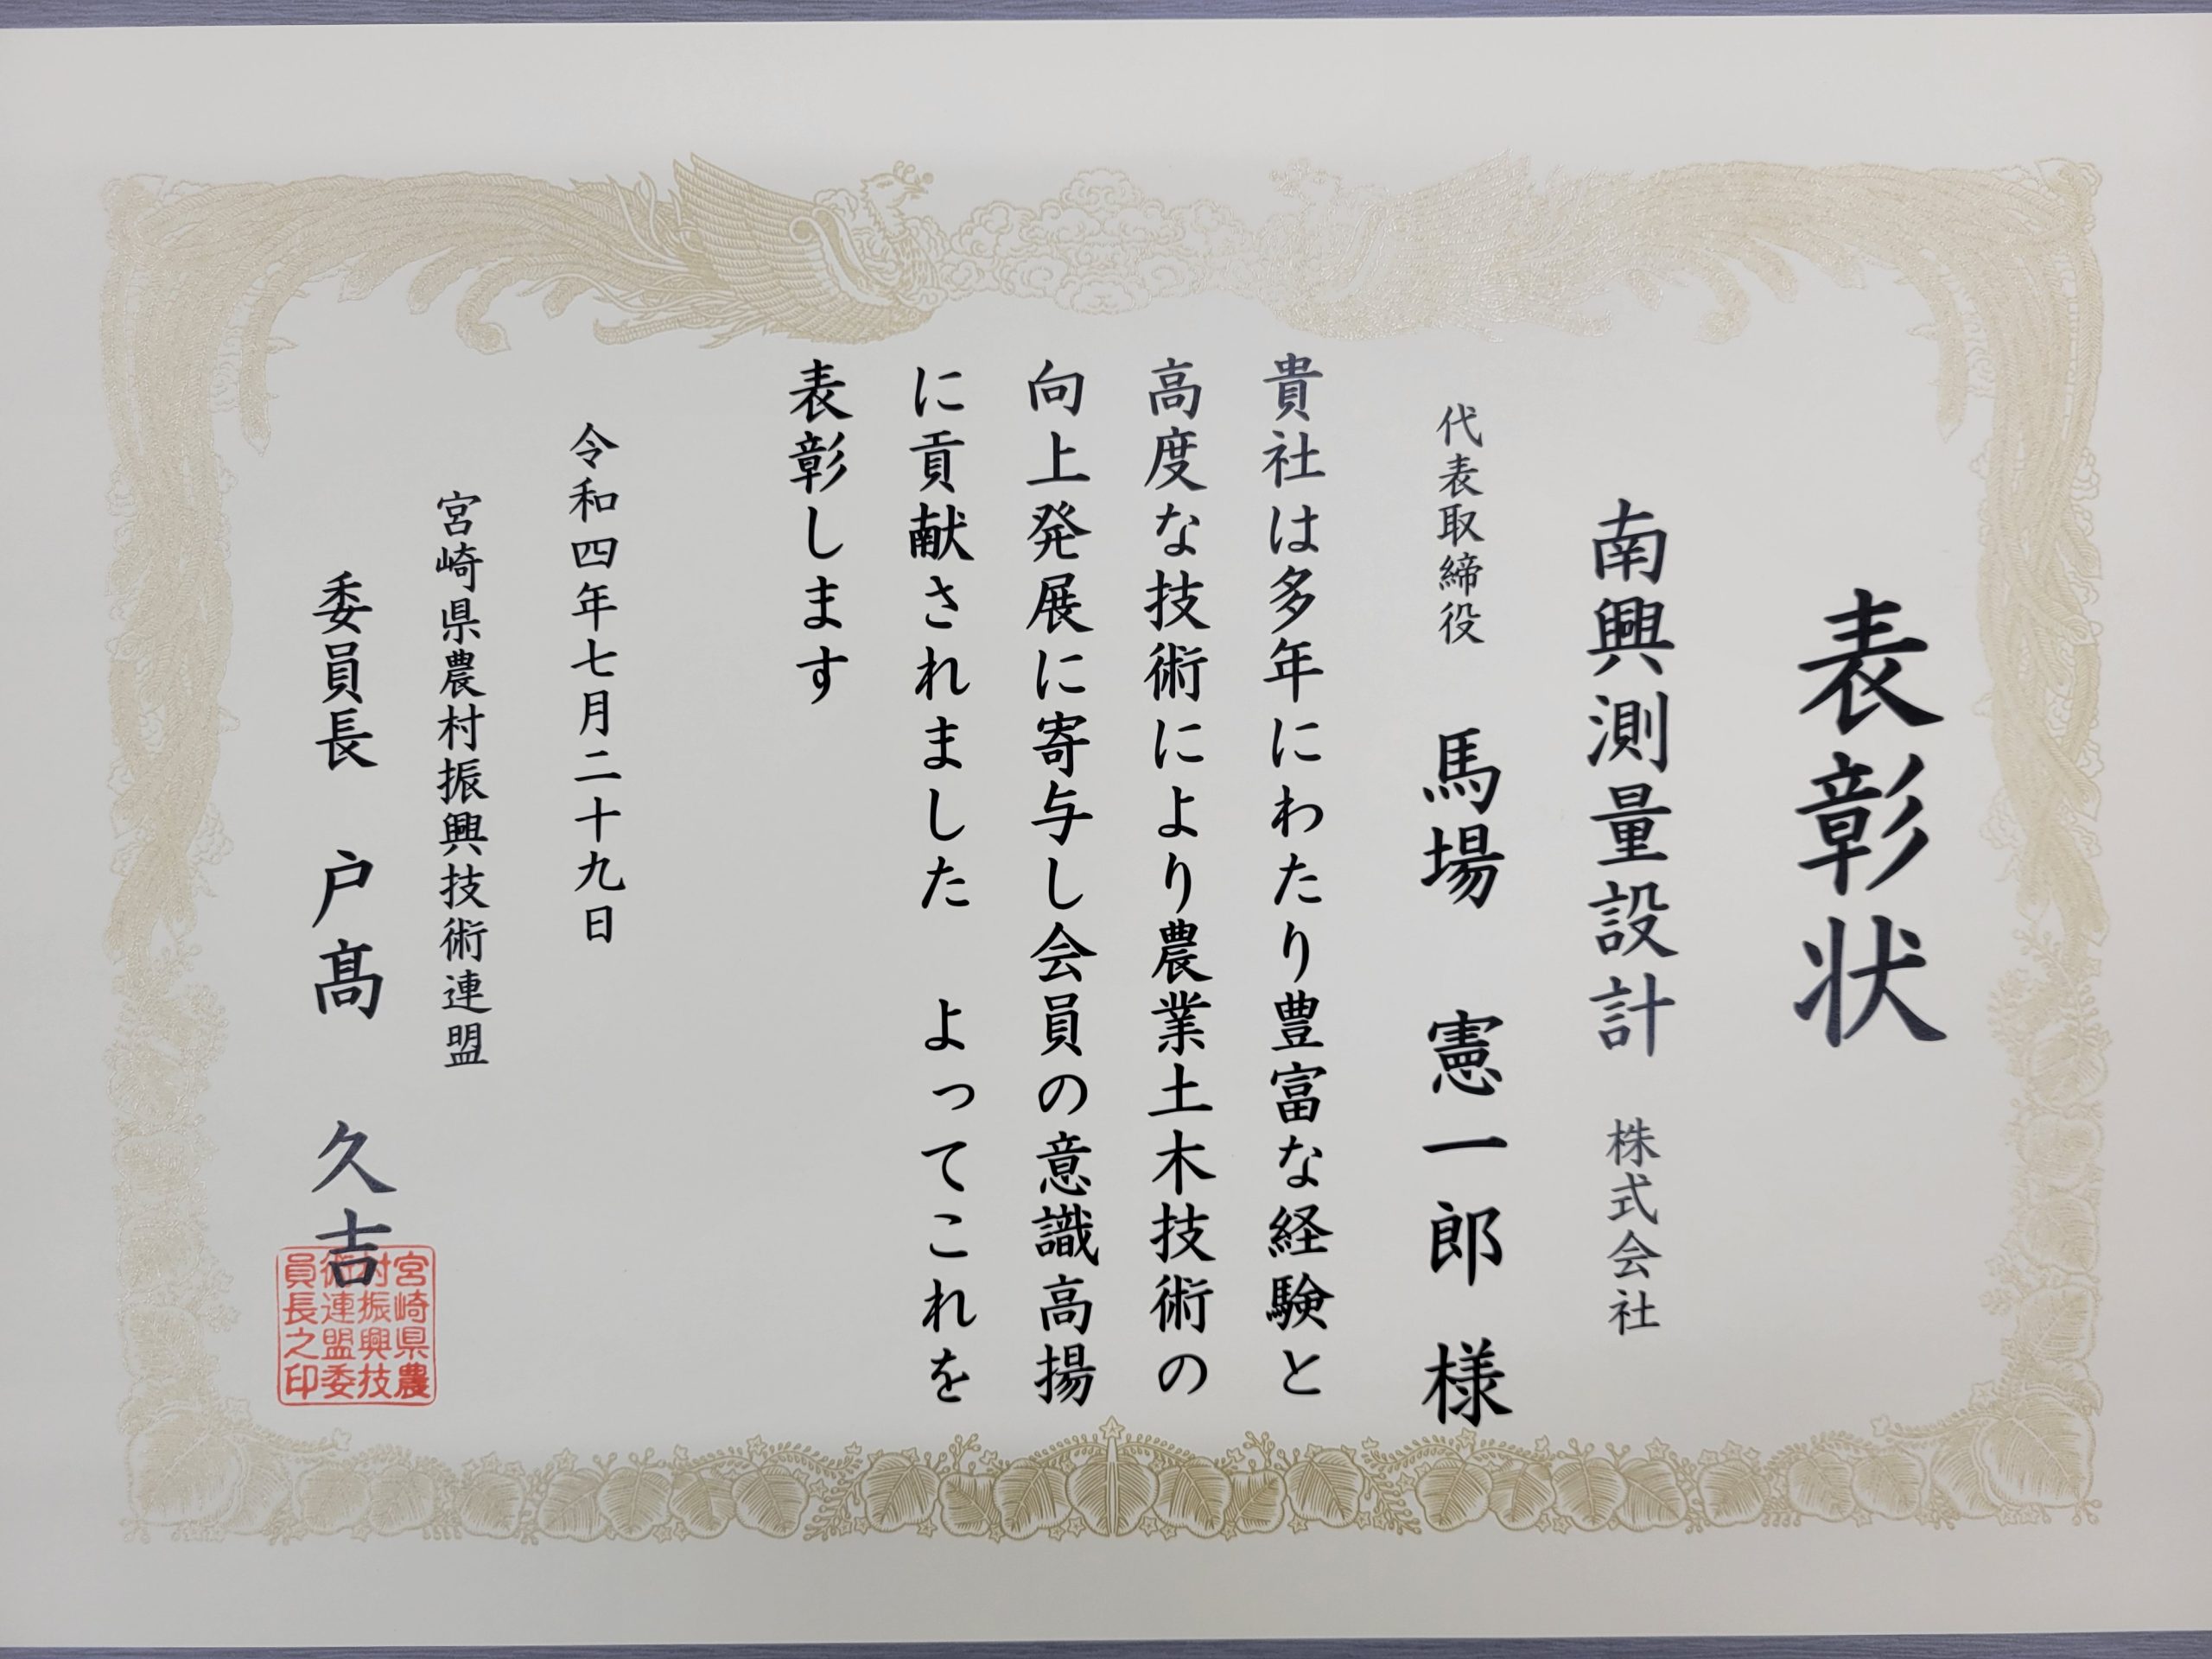 表彰状
南興測量設計 株式会社
代表取締役 馬場 憲一郎 様
貴社は多年にわたり豊富な経験と
高度な技術により農業土木技術の
向上発展に寄与し会員の意識高揚
に貢献されました よってこれを
表彰します
令和四年七月二十九日
宮崎県農村振興技術連盟
委員長 戸髙 久吉
宮崎県農
村振興技
術連盟委
員長之印